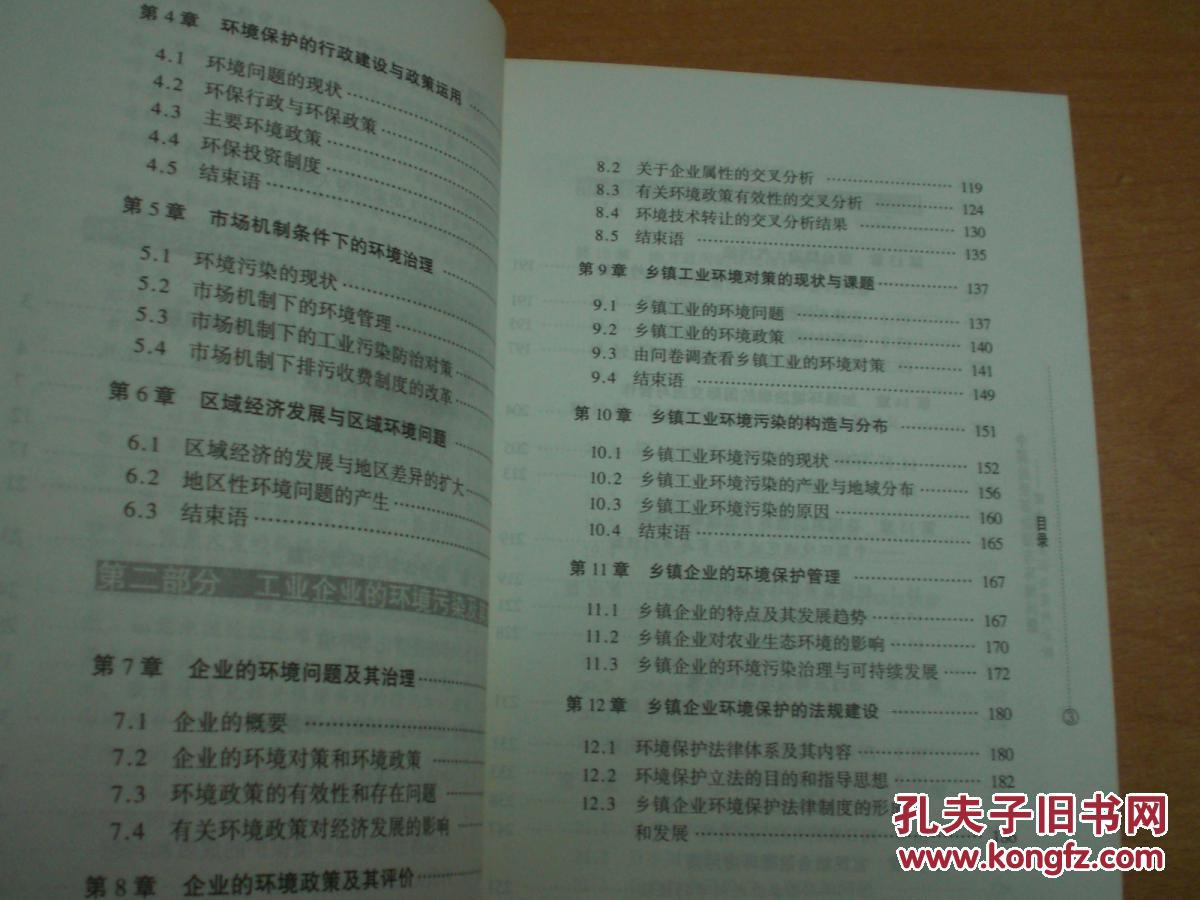 第4章 环境保护的行政建设与政策运用
4.1 环境问题的现状
4.2 环保行政与环保政策
4.3 主要环境政策
4.4 环保投资制度
4.5 结束语
第5章 市场机制条件下的环境治理
5.1 环境污染的现状
5.2 市场机制下的环境管理
5.3 市场机制下的工业污染防治对策
5.4 市场机制下排污收费制度的改革
第6章 区域经济发展与区域环境问题
6.1 区域经济的发展与地区差异的扩大
6.2 地区性环境问题的产生
6.3 结束语
第二部分 工业企业的环境污染及
第7章 企业的环境问题及其治理
7.1 企业的概要
7.2 企业的环境对策和环境政策
7.3 环境政策的有效性和存在问题
7.4 有关环境政策对经济发展的影响
第8章 企业的环境政策及其评价
8.2 关于企业属性的交叉分析 119
8.3 有关环境政策有效性的交叉分析 124
8.4 环境技术转让的交叉分析结果 130
8.5 结束语 135
第9章 乡镇工业环境对策的现状与课题 137
9.1 乡镇工业的环境问题 137
9.2 乡镇工业的环境政策 140
9.3 由问卷调查看乡镇工业的环境对策 141
9.4 结束语 149
第10章 乡镇工业环境污染的构造与分布 151
10.1 乡镇工业环境污染的现状 152
10.2 乡镇工业环境污染的产业与地域分布 156
10.3 乡镇工业环境污染的原因 160
10.4 结束语 165
第11章 乡镇企业的环境保护管理 167
11.1 乡镇企业的特点及其发展趋势 167
11.2 乡镇企业对农业生态环境的影响 170
11.3 乡镇企业的环境污染治理与可持续发展 172
第12章 乡镇企业环境保护的法规建设 180
12.1 环境保护法律体系及其内容 180
12.2 环境保护立法的目的和指导思想 182
12.3 乡镇企业环境保护法律制度的形
和发展
目录
③
孔夫子旧书网
www.kongfz.com